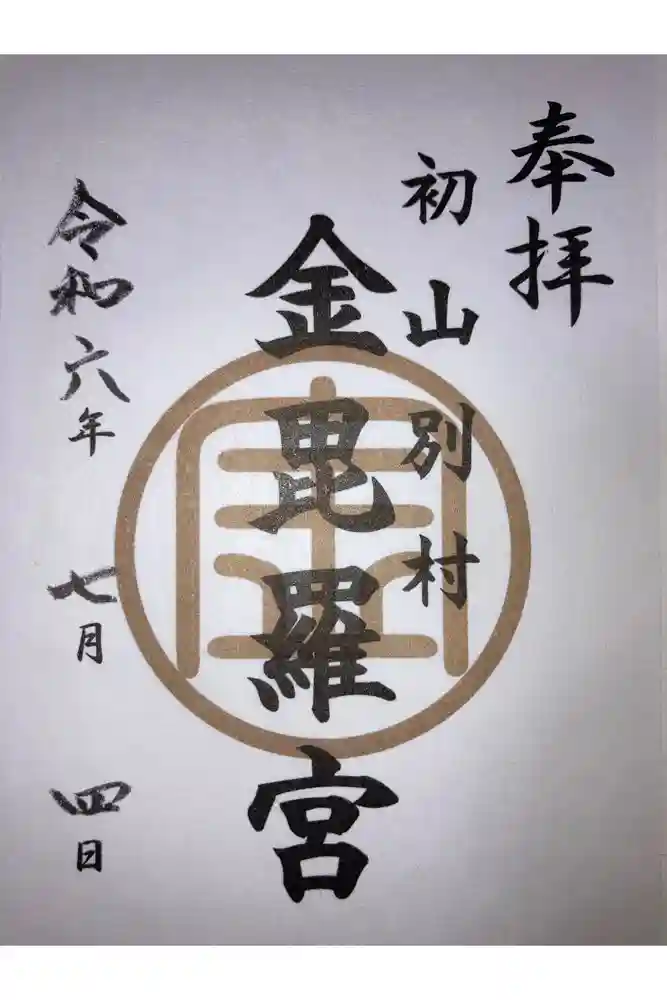 奉拝
初山別村
金毘羅宮
令和六年 七月 四日